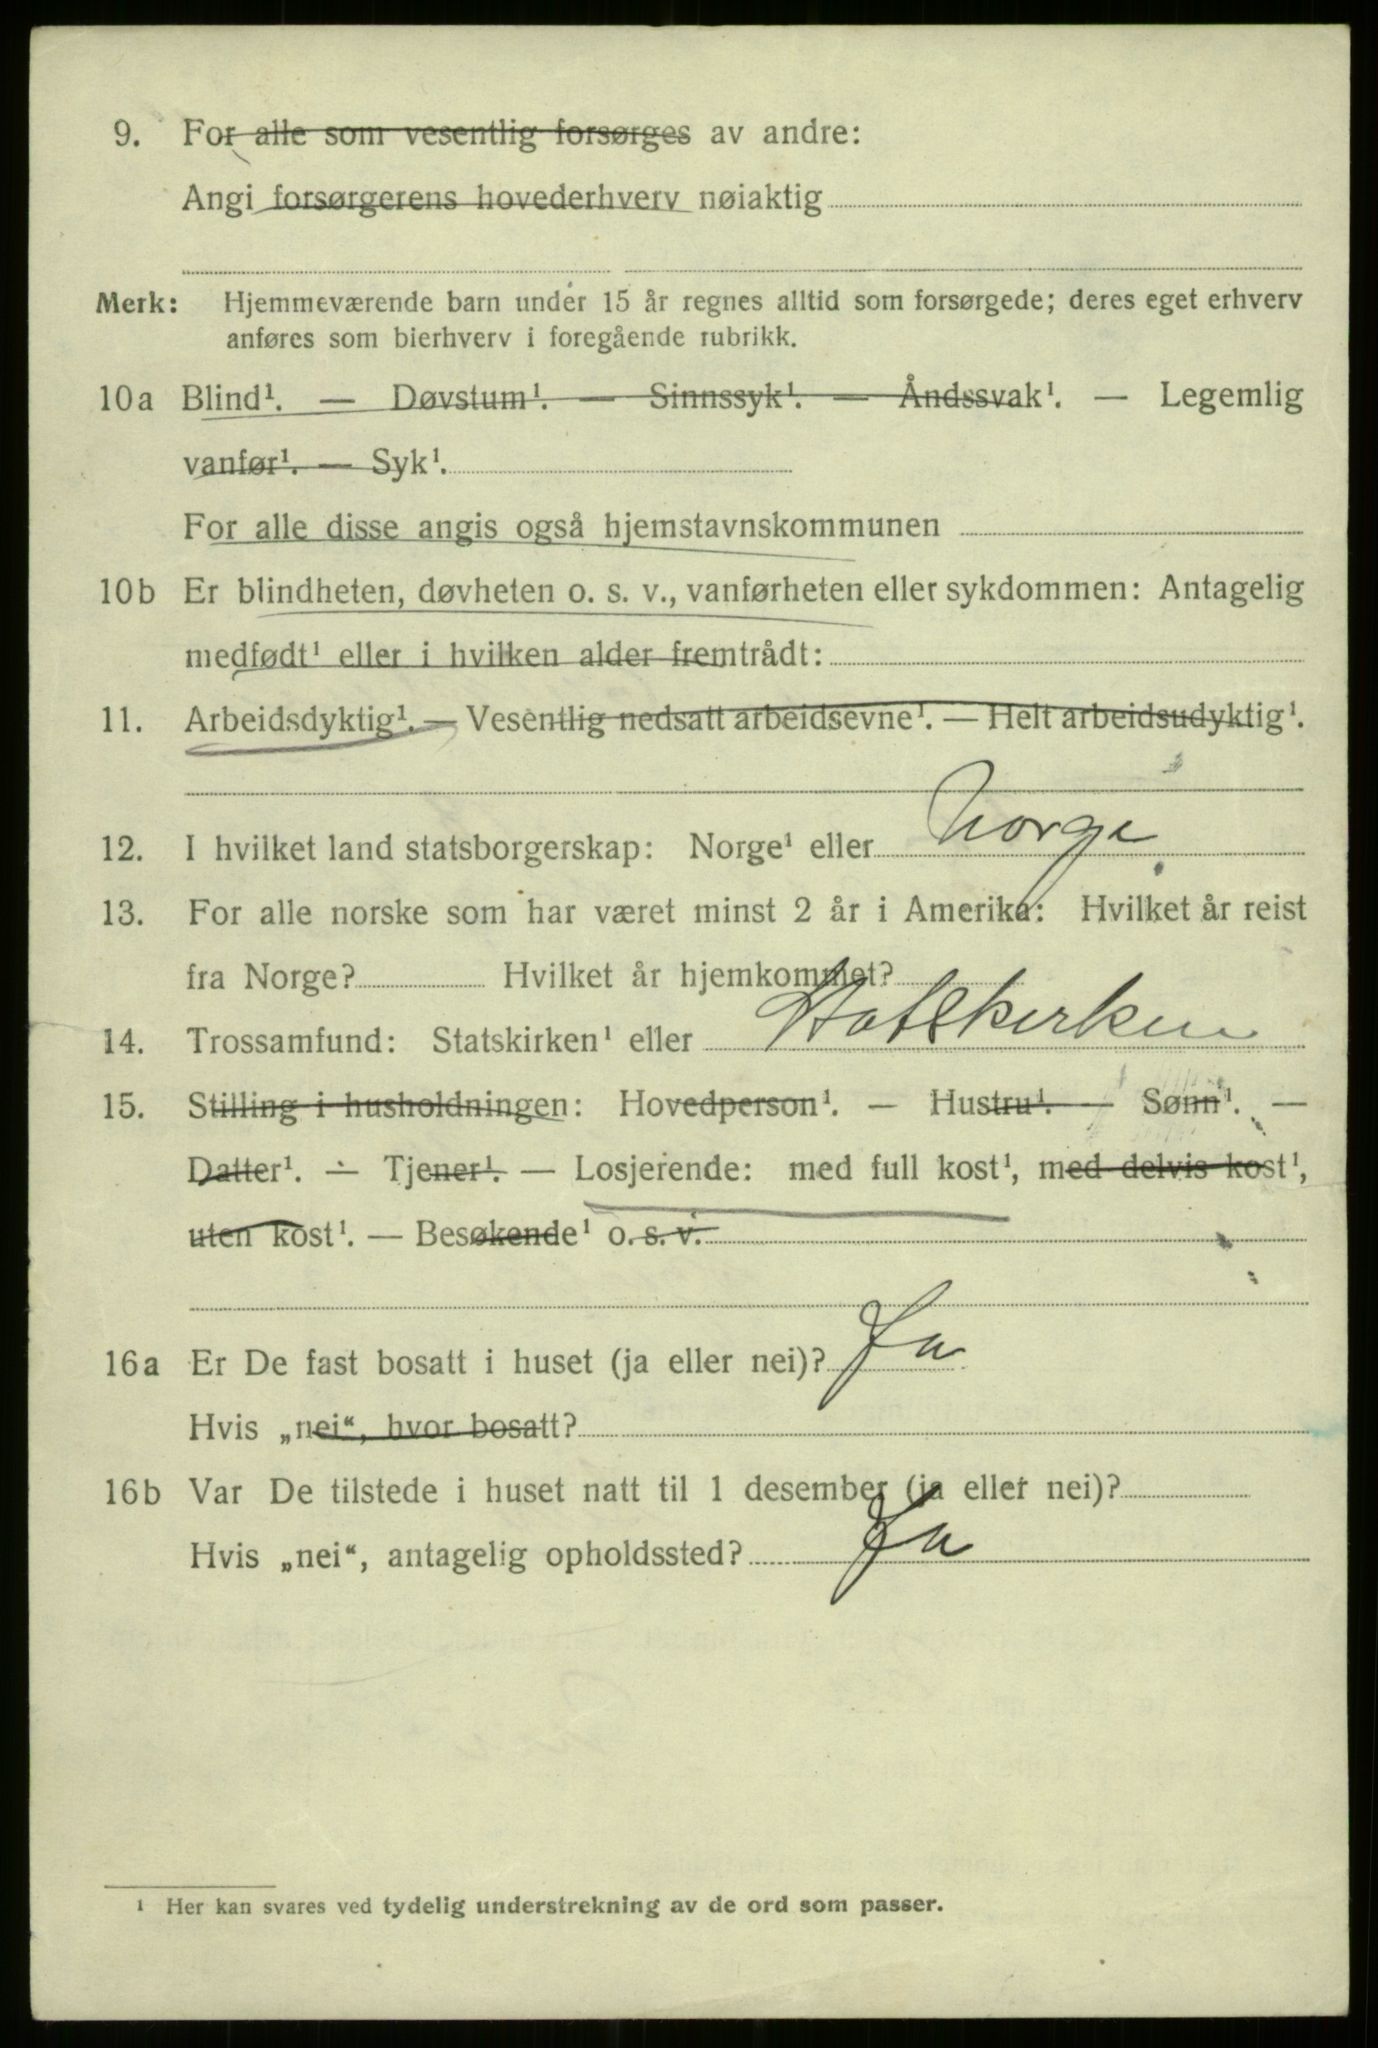 9. For alle som vesentlig forsørges av andre:
Angi forsørgerens hovederhverv nøiaktig
Merk: Hjemmeværende barn under 15 år regnes alltid som forsørgede; deres eget erhverv
anføres som bierhverv i foregående rubrikk.
10a Blind¹. — Døvstum¹. — Sinnssyk¹. — Åndssvak¹. — Legemlig
vanfør¹. — Syk¹.
For alle disse angis også hjemstavnskommunen
10b Er blindheten, døvheten o. s. v., vanførheten eller sykdommen: Antagelig
medfødt¹ eller i hvilken alder fremtrådt:
11. Arbeidsdyktig¹. — Vesentlig nedsatt arbeidsevne¹. — Helt arbeidsudyktig¹.
12. I hvilket land statsborgerskap: Norge¹ eller Norge
13. For alle norske som har været minst 2 år i Amerika: Hvilket år reist
fra Norge? Hvilket år hjemkommet?
14. Trossamfund: Statskirken¹ eller Statskirken
15. Stilling i husholdningen: Hovedperson¹. — Hustru¹. — Sønn¹. —
Datter¹. — Tjener¹. — Losjerende: med full kost¹, med delvis kost¹,
uten kost¹. — Besøkende¹ o. s. v.
16a Er De fast bosatt i huset (ja eller nei)? Ja
Hvis „nei“, hvor bosatt?
16b Var De tilstede i huset natt til 1 desember (ja eller nei)?
Hvis „nei“, antagelig opholdssted? Ja
¹ Her kan svares ved tydelig understrekning av de ord som passer.